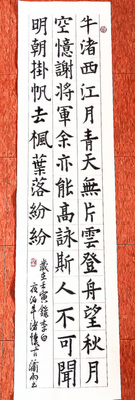 牛渚西江月青天無片雲登舟望秋月
空憶謝將軍余亦能高詠斯人不可聞
明朝掛帆去楓葉落紛紛
歲在壬寅錄李白
夜泊牛渚懷古